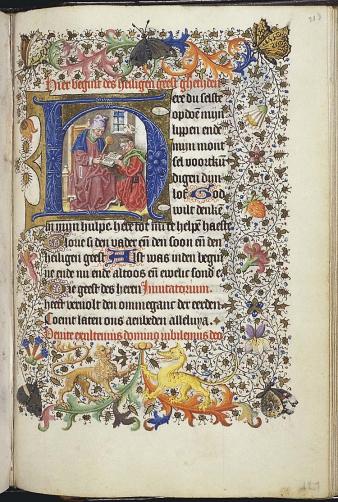 Hier begint des heiligen geest ghetiden
Here du selste
opdoē mijn
lippen ende
mijn mont
sel voortkū
digen dijn
lof God
wilt denkē
in mijn hulpe here tot mi te helpē haeste
Glorie si den vader eñ den soon eñ den
heiligen geest Alst was inden begin
ne ende nu ende altoos eñ ewelic sonđ e
Die geest des heren Inuitatorium
heeft veruolt den ommeganc der eerden
Coemt laten ons aenbeden alleluya
Uenite exultemus domino iubilemus deo